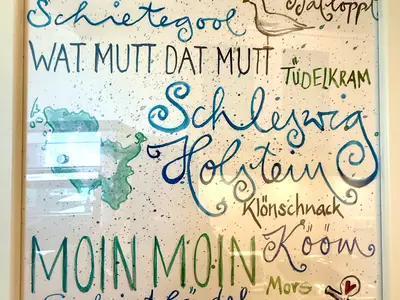 Schietegool
WAT MUTT DAT MUTT
TÜDELKRAM
Schleswig
Holstein
Klönschnack
MOIN MOIN
Kööm
Mors